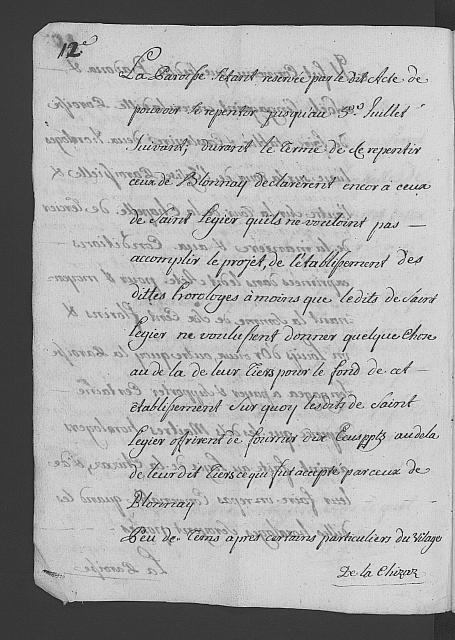 12.e
La Paroisse s'etant reservée par le dit Acte de
pouvoir se repentir jusqu'au 5.e Juillet
Suivant, durant le terme de se repentir
ceux de Blonnay declarerent encor a ceux
de Saint Legier qu'ils ne vouloint pas —
accomplir le projet, de l'etablissement des
dittes horologes à moins que ledits de Saint
Legier ne voulussent donner quelque chose
au de la de leur tiers pour le fond de cet —
etablissement sur quoy lesdits de Saint
Legier offrirent de fournir dix Ecus ppts au dela
de leur dit tiers ce qui fut accepté par ceux de
Blonnay
Peu de tems apres certains particuliers du Vilage
De la Chizaz